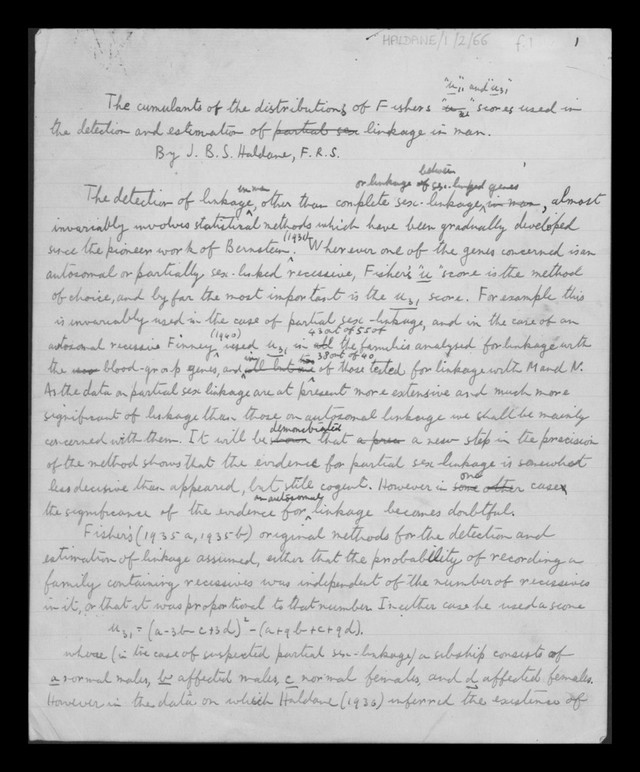 HALDANE/1/2/66 f.1 1
"u11" and "u31"
The cumulants of the distributions of Fisher's "u31" scores used in
the detection and estimation of partial sex linkage in man.
By J. B. S. Haldane, F.R.S.
in man or linkage between of sex-linked genes
The detection of linkage, other than complete sex-linkage, in man, almost
invariably involves statistical methods which have been gradually developed
since the pioneer work of Bernstein (1931). Wherever one of the genes concerned is an
autosomal or partially sex-linked recessive, Fisher's "u" score is the method
of choice, and by far the most important is the u31 score. For example this
is invariably used in the case of partial sex-linkage, and in the case of an
(1940) 43 out of 55 of
autosomal recessive Finney used u31 in all the families analysed for linkage with
in 38 out of 40
the blood-group genes, and all but of those tested for linkage with M and N.
As the data on partial sex linkage are at present more extensive and much more
significant of linkage than those on autosomal linkage we shall be mainly
demonstrated
concerned with them. It will be shown that a new step in the precision
of the method shows that the evidence for partial sex-linkage is somewhat
one
less decisive than appeared, but still cogent. However in some other case
an autosomal
the significance of the evidence for linkage becomes doubtful.
Fisher's (1935a, 1935b) original methods for the detection and
estimation of linkage assumed, either that the probability of recording a
family containing recessives was independent of the number of recessives
in it, or that it was proportional to that number. In either case he used a score
u31 = (a-3b-c+3d)² - (a+9b+c+9d).
where (in the case of suspected partial sex-linkage) a sibship consists of
a normal males, b affected males, c normal females, and d affected females.
However in the data on which Haldane (1936) inferred the existence of